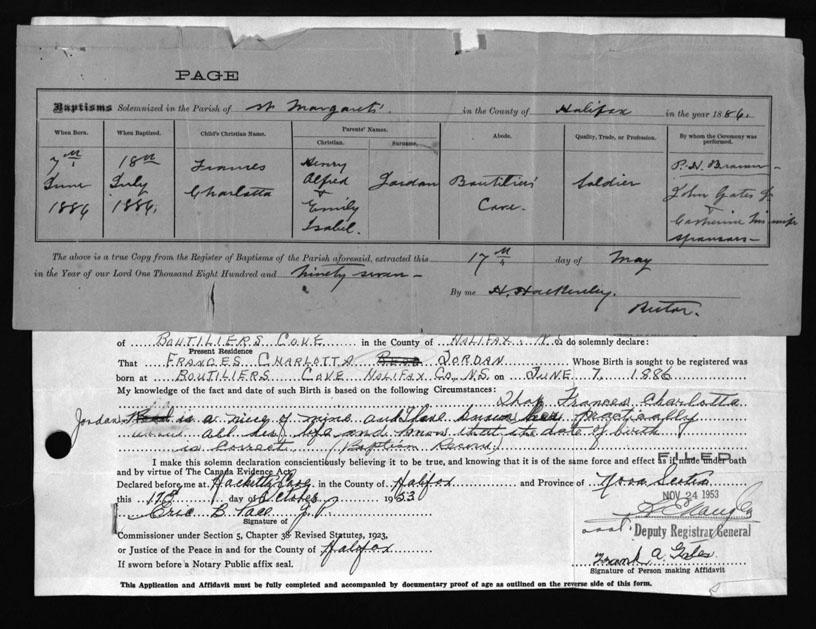 PAGE
Baptisms Solemnized in the Parish of St Margarets' in the County of Halifax in the year 1886.
When Born. When Baptized. Child's Christian Name. Parents' Names. Abode. Quality, Trade, or Profession. By whom the Ceremony was performed.
Christian. Surname.
7th June 1886 18th July 1886. Frances Charlotta Henry Alfred & Emily Isabel. Jordan Boutiliers' Cove. Soldier P. H. Brown
John Gates Jr
& Catherine his wife
sponsors
The above is a true Copy from the Register of Baptisms of the Parish aforesaid, extracted this 17th day of May
in the Year of our Lord One Thousand Eight Hundred and ninety seven
By me H. How
Rector.
of BOUTILIERS COVE in the County of HALIFAX N.S. do solemnly declare:
Present Residence
That FRANCES CHARLOTTA JORDAN Whose Birth is sought to be registered was
born at BOUTILIERS COVE HALIFAX CO., N.S. on JUNE 7, 1886
My knowledge of the fact and date of such Birth is based on the following Circumstances:
That Frances Charlotta
Jordan is a niece of mine and I have known her practically
all her life and know that the date of birth
is correct (Baptism Record)
I make this solemn declaration conscientiously believing it to be true, and knowing that it is of the same force and effect as if made under oath
and by virtue of The Canada Evidence Act.
FILED
Declared before me at Hacketts Cove in the County of Halifax and Province of Nova Scotia
this 17th day of October 1953
NOV 24 1953
Eric B. Pace J.P.
Signature of
Deputy Registrar General
Commissioner under Section 5, Chapter 38 Revised Statutes, 1923,
or Justice of the Peace in and for the County of Halifax
Frank A. Gates
If sworn before a Notary Public affix seal.
Signature of Person making Affidavit
This Application and Affidavit must be fully completed and accompanied by documentary proof of age as outlined on the reverse side of this form.